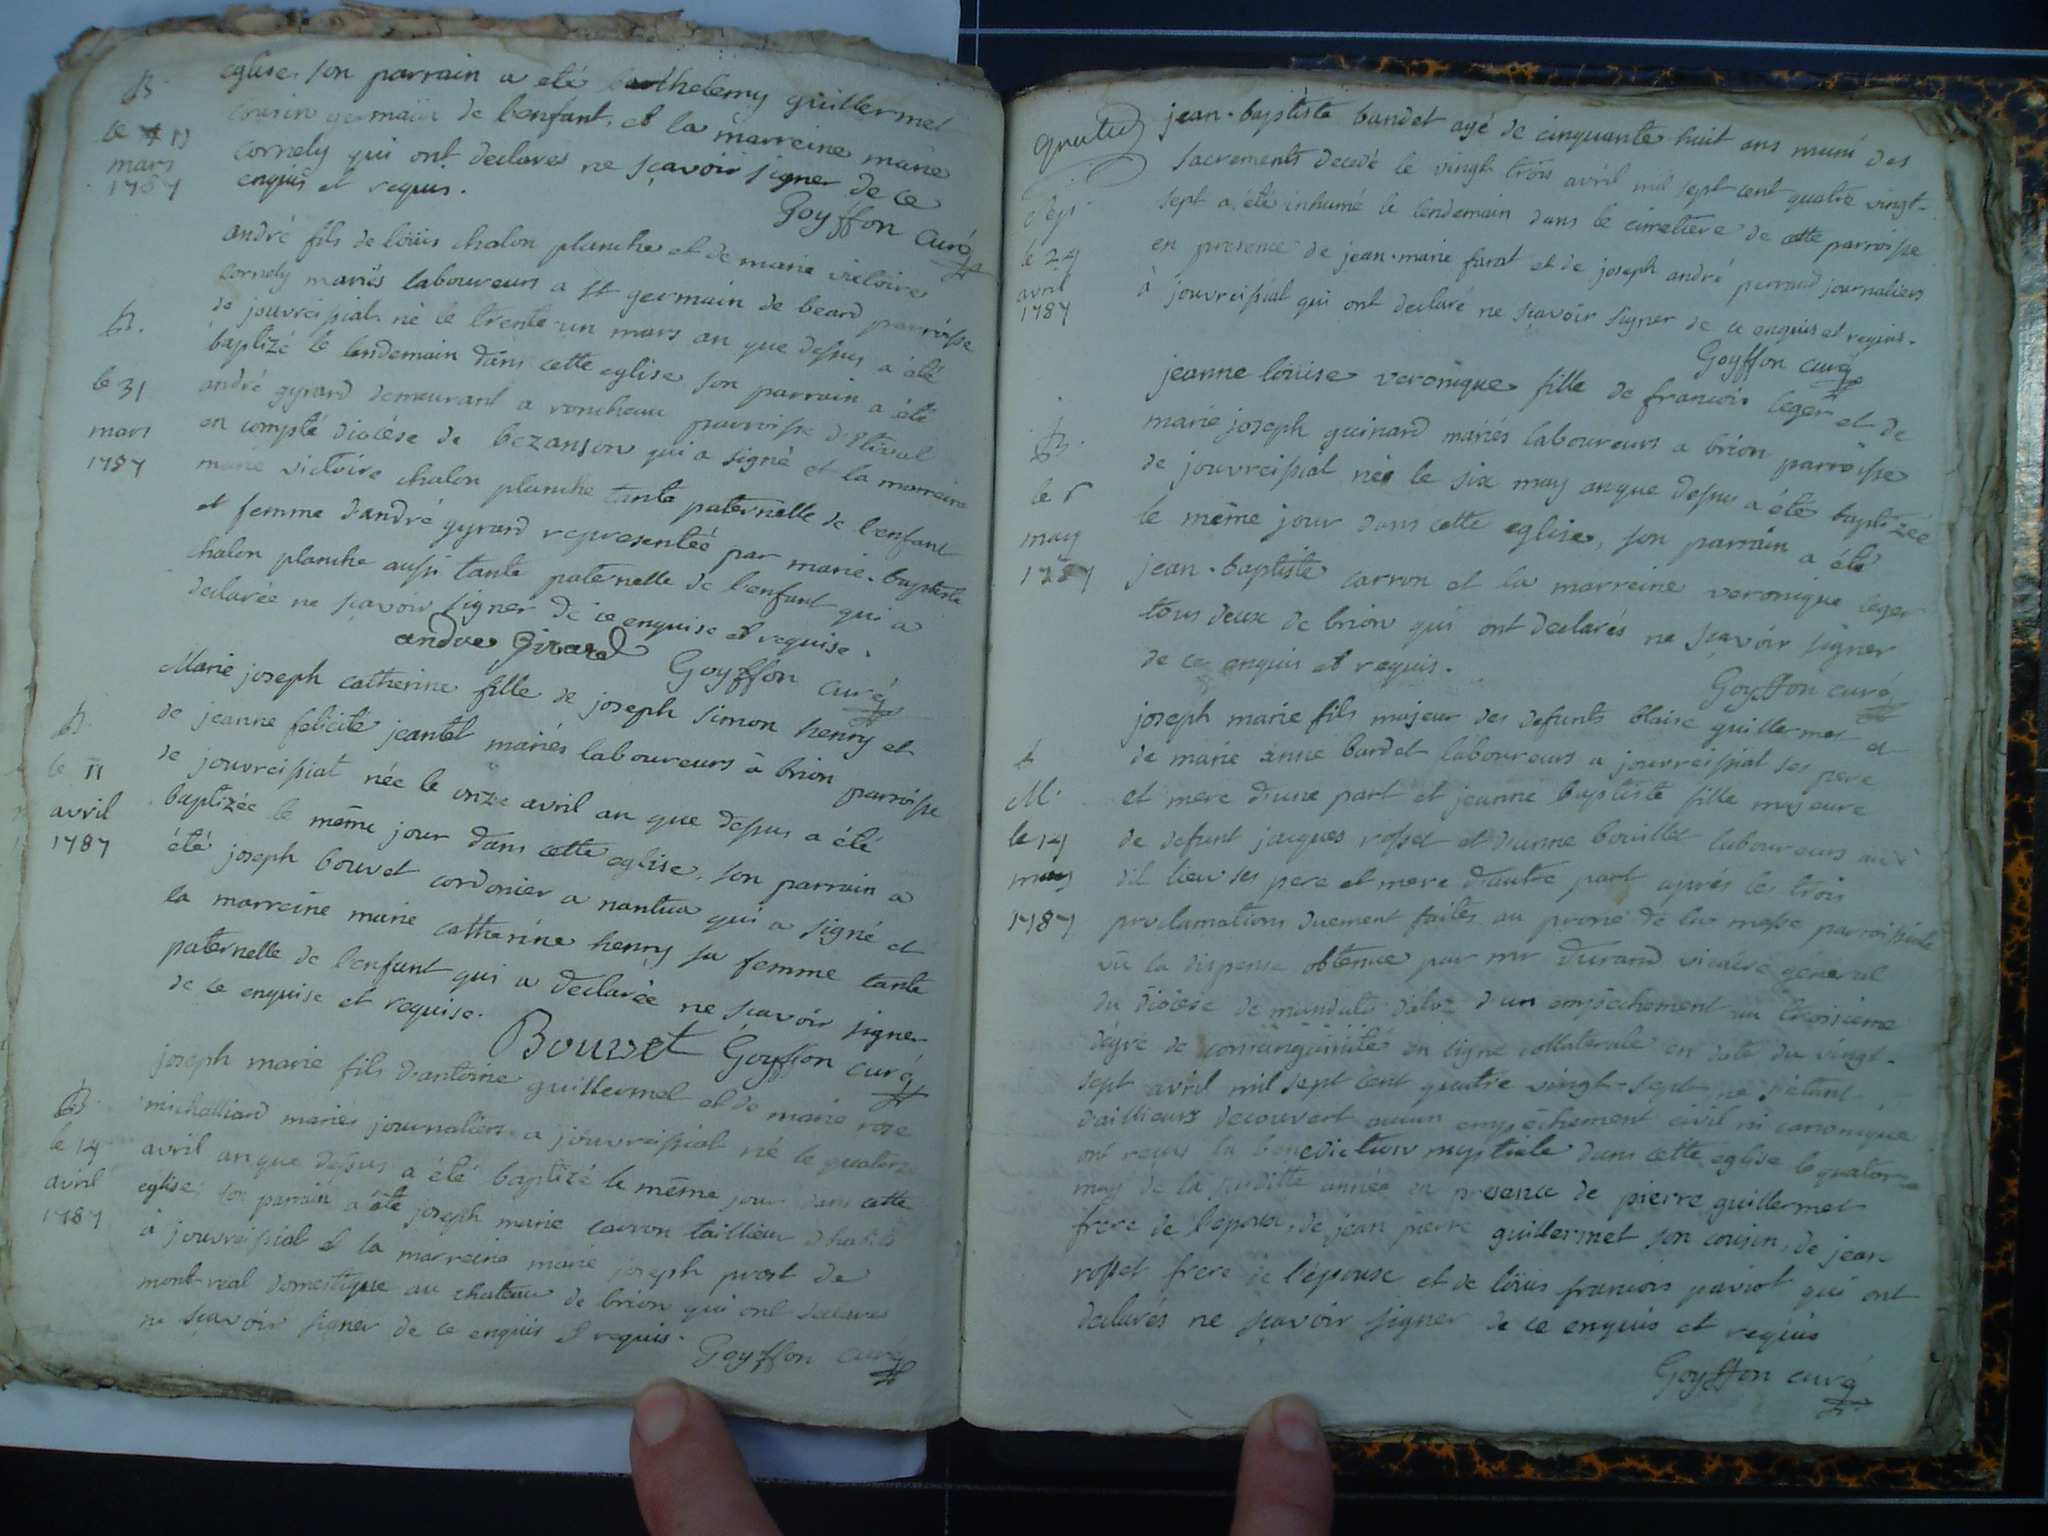 B.
le 11
mars
1787
eglise. son parrain a eté barthelemy guillermet
cousin germain de l'enfant, et la marreine marie
cornely qui ont declarés ne sçavoir signer de ce
enquis et requis.
Goyffon curé
B.
le 31
mars
1787
andré fils de loüis chalon planche et de marie victoire
cornely mariés laboureurs a st germain de beard parroisse
de jouvreissiat né le trente-un mars an que dessus a été
baptizé le lendemain dans cette eglise son parrain a été
andré gyrard demeurant a roncheau parroisse d'Etival
en compté diocèse de bezanson qui a signé et la marreine
marie victoire chalon planche tante paternelle de l'enfant
et femme d'andré gyrard representée par marie-baptiste
chalon planche aussi tante paternelle de l'enfant qui a
declarée ne sçavoir signer de ce enquise et requise.
andre Girard Goyffon curé
B.
le 11
avril
1787
Marie joseph catherine fille de joseph simon henry et
de jeanne felicité jeantet mariés laboureurs à brion parroisse
de jouvreissiat née le onze avril an que dessus a été
baptizée le même jour dans cette eglise. son parrain a
été joseph bouvet cordonier a nantua qui a signé et
la marreine marie catherine henry sa femme tante
paternelle de l'enfant qui a declarée ne sçavoir signer
de ce enquise et requise.
Bouvet Goyffon curé
B.
le 14
avril
1787
joseph marie fils d'antoine guillermet et de marie rose
michalliard mariés journaliers a jouvreissiat né le quatorze
avril an que dessus a été baptizé le même jour dans cette
eglise; son parrain a été joseph marie carron taillieur d'habits
à jouvreissiat et la marreine marie joseph prost de
mont-real domestique au chateau de brion qui ont declarés
ne sçavoir signer de ce enquis et requis.
Goyffon curé
gratis
Sep.
le 24
avril
1787
jean-baptiste bandet agé de cinquante huit ans muni des
sacrements decedé le vingt trois avril mil sept cent quatre vingt-
sept a été inhumé le lendemain dans le cimetière de cette parroisse
en presence de jean-marie farat et de joseph andré perraud journaliers
à jouvreissiat qui ont declaré ne sçavoir signer de ce enquis et requis.
Goyffon curé
B.
le 6
may
1787
jeanne loüise veronique fille de francois leger et de
marie joseph guinard mariés laboureurs a brion parroisse
de jouvreissiat née le six may an que dessus a été baptizée
le même jour dans cette eglise, son parrain a été
jean-baptiste carron et la marreine veronique leger
tous deux de brion qui ont declarés ne sçavoir signer
de ce enquis et requis.
Goyffon curé
M.
le 14
may
1787
joseph marie fils majeur des defunts blaise guillermet et
de marie anne bardet laboureurs a jouvreissiat ses pere
et mere d'une part et jeanne baptiste fille majeure
de defunt jacques rosset et d'anne bouillet laboureurs au
dit lieu ses pere et mere d'autre part après les trois
proclamations duement faites au prone de la messe parroissiale
vû la dispense obtenue par mr durand vicaire général
du diocèse de d'un empêchement au troisieme
dégré de consanguinité en ligne collaterale en date du vingt-
sept avril mil sept cent quatre vingt-sept ne s'étant
d'aillieurs decouvert aucun empêchement civil ni canonique
ont reçus la benediction nuptiale dans cette eglise le quatorze
may de la susditte année en presence de pierre guillermet
frere de l'epoux, de jean pierre guillermet son cousin, de jean
rosset frere de l'épouse et de loüis francois paviot qui ont
declarés ne sçavoir signer de ce enquis et requis
Goyffon curé